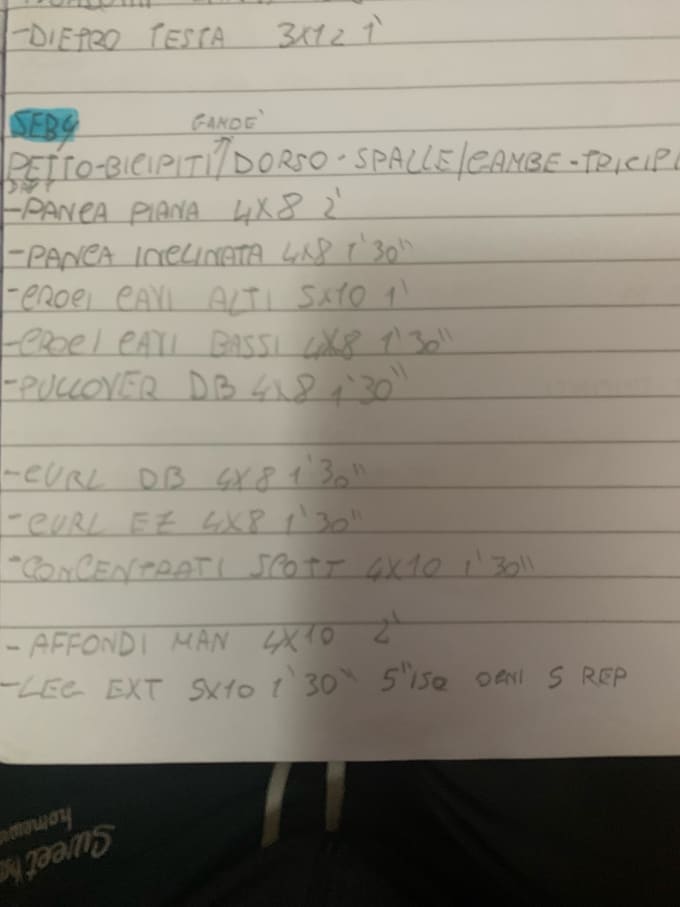 -DIETRO TESTA 3X12 1'
SEB4
GAMBE
PETTO-BICIPITI/DORSO-SPALLE/GAMBE-TRICIPI
-PANCA PIANA 4X8 2'
-PANCA INCLINATA 4X8 1'30"
-CROCI CAVI ALTI 5X10 1'
-CROCI CAVI BASSI 4X8 1'30"
-PULLOVER DB 4X8 1'30"
-CURL DB 4X8 1'30"
-CURL EZ 4X8 1'30"
-CONCENTRATI SCOTT 4X10 1'30"
-AFFONDI MAN 4X10 2'
-LEG EXT 5X10 1'30" 5"ISO OGNI 5 REP
Sweet